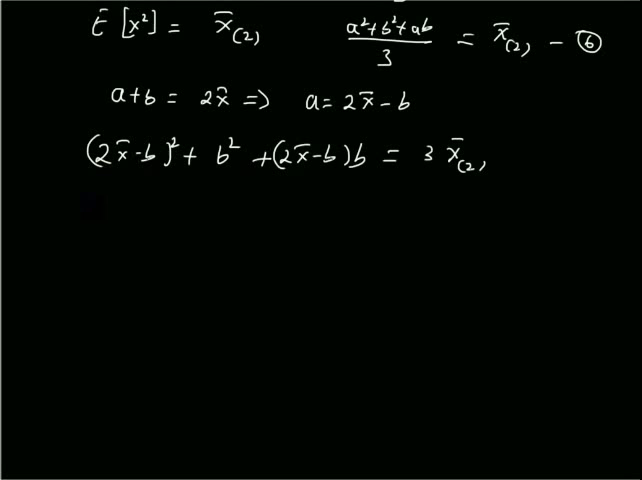 E [x²] = x̄₍₂₎    (a²+b²+ab)/3 = x̄₍₂₎ - ⑥
a+b = 2x̄ => a = 2x̄ - b
(2x̄-b)² + b² + (2x̄-b)b = 3 x̄₍₂₎